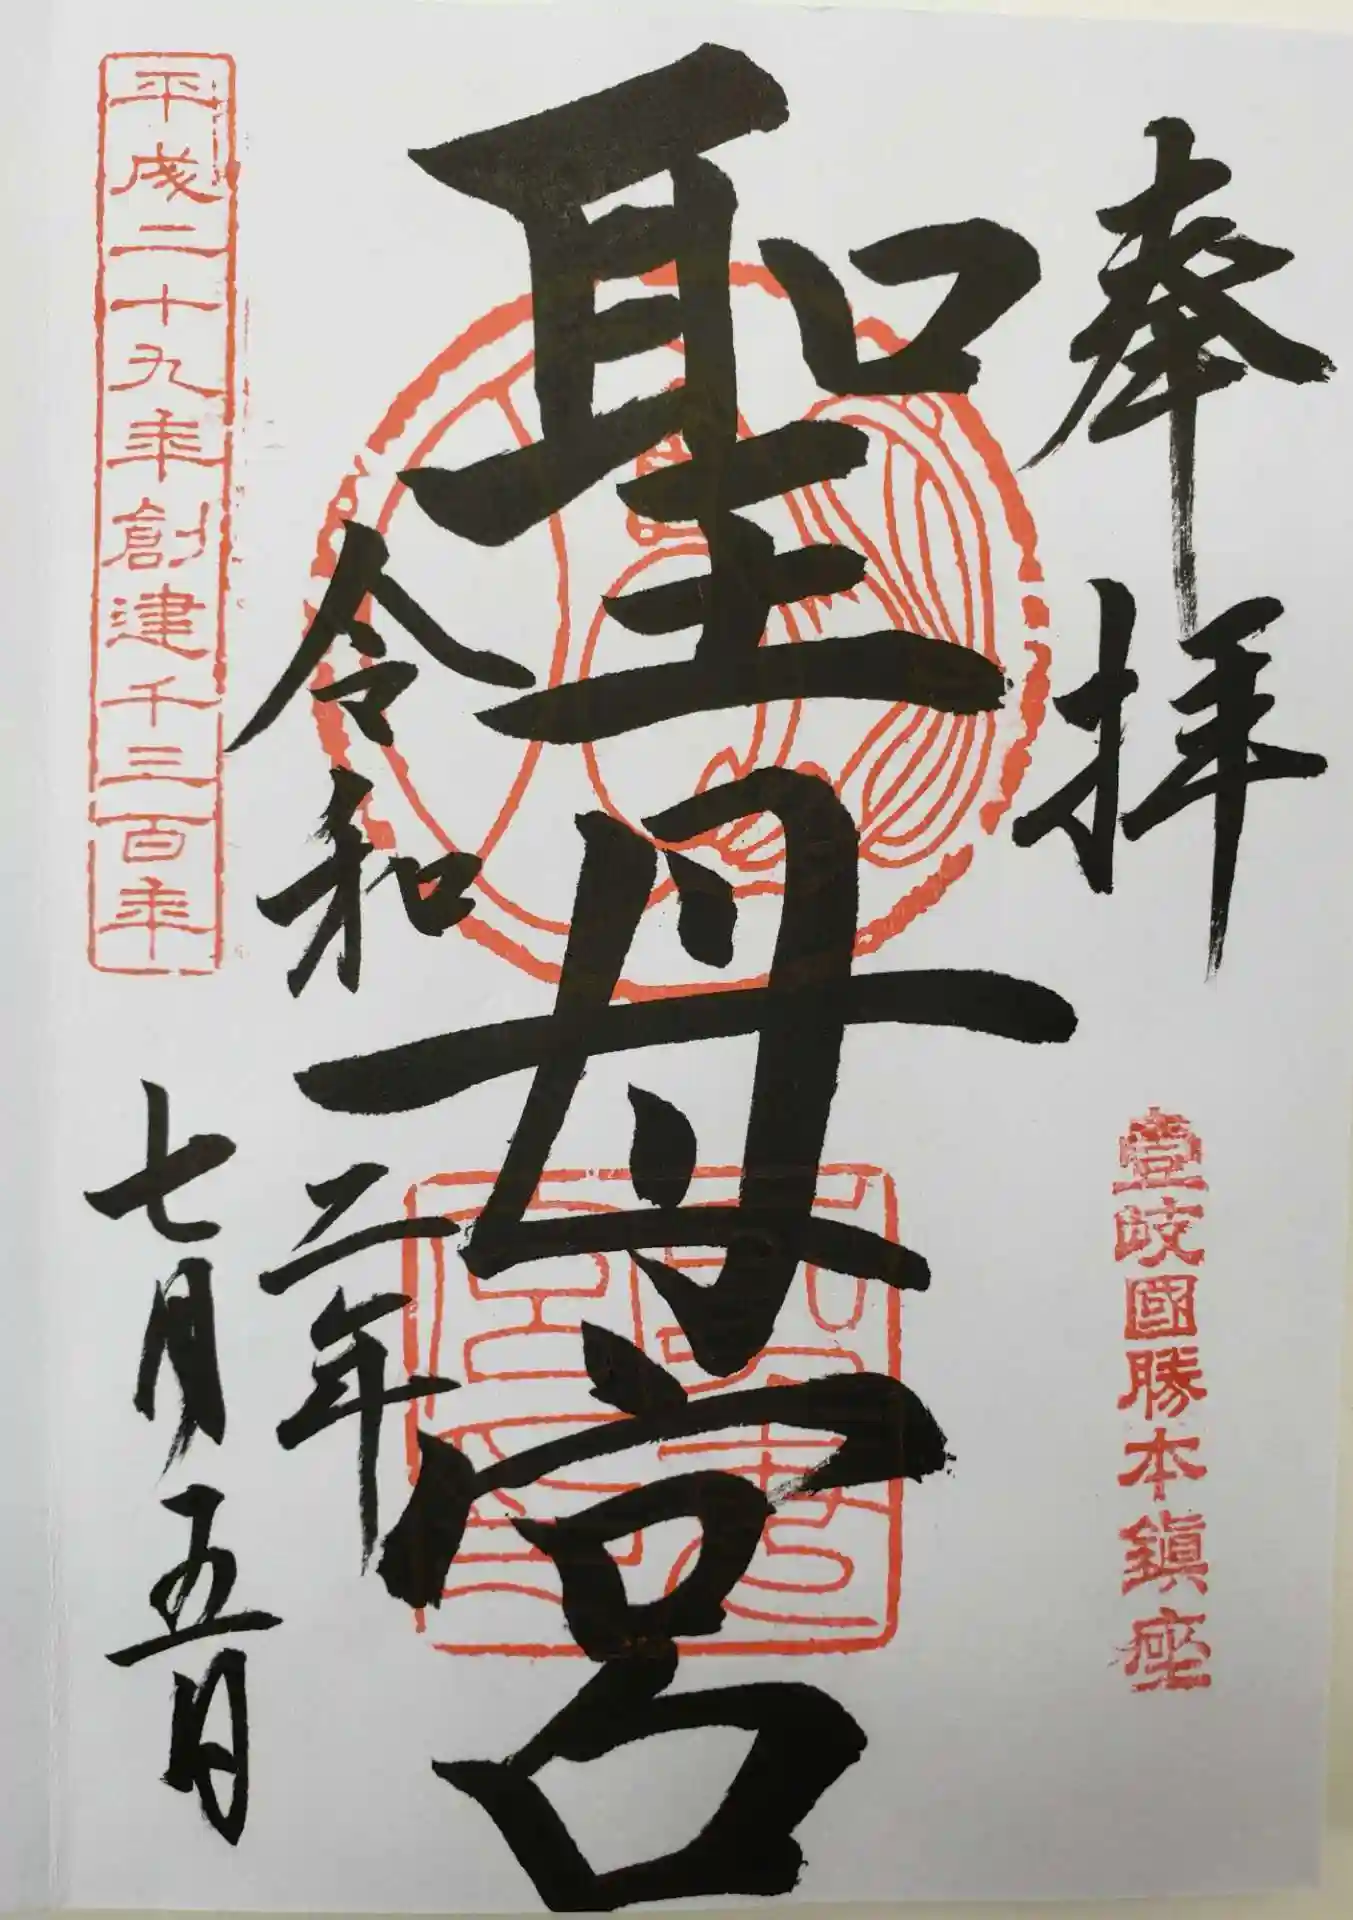 奉拝
壹岐國勝本鎮座
聖母宮
令和二年
七月五日
平成二十九年創建千三百年